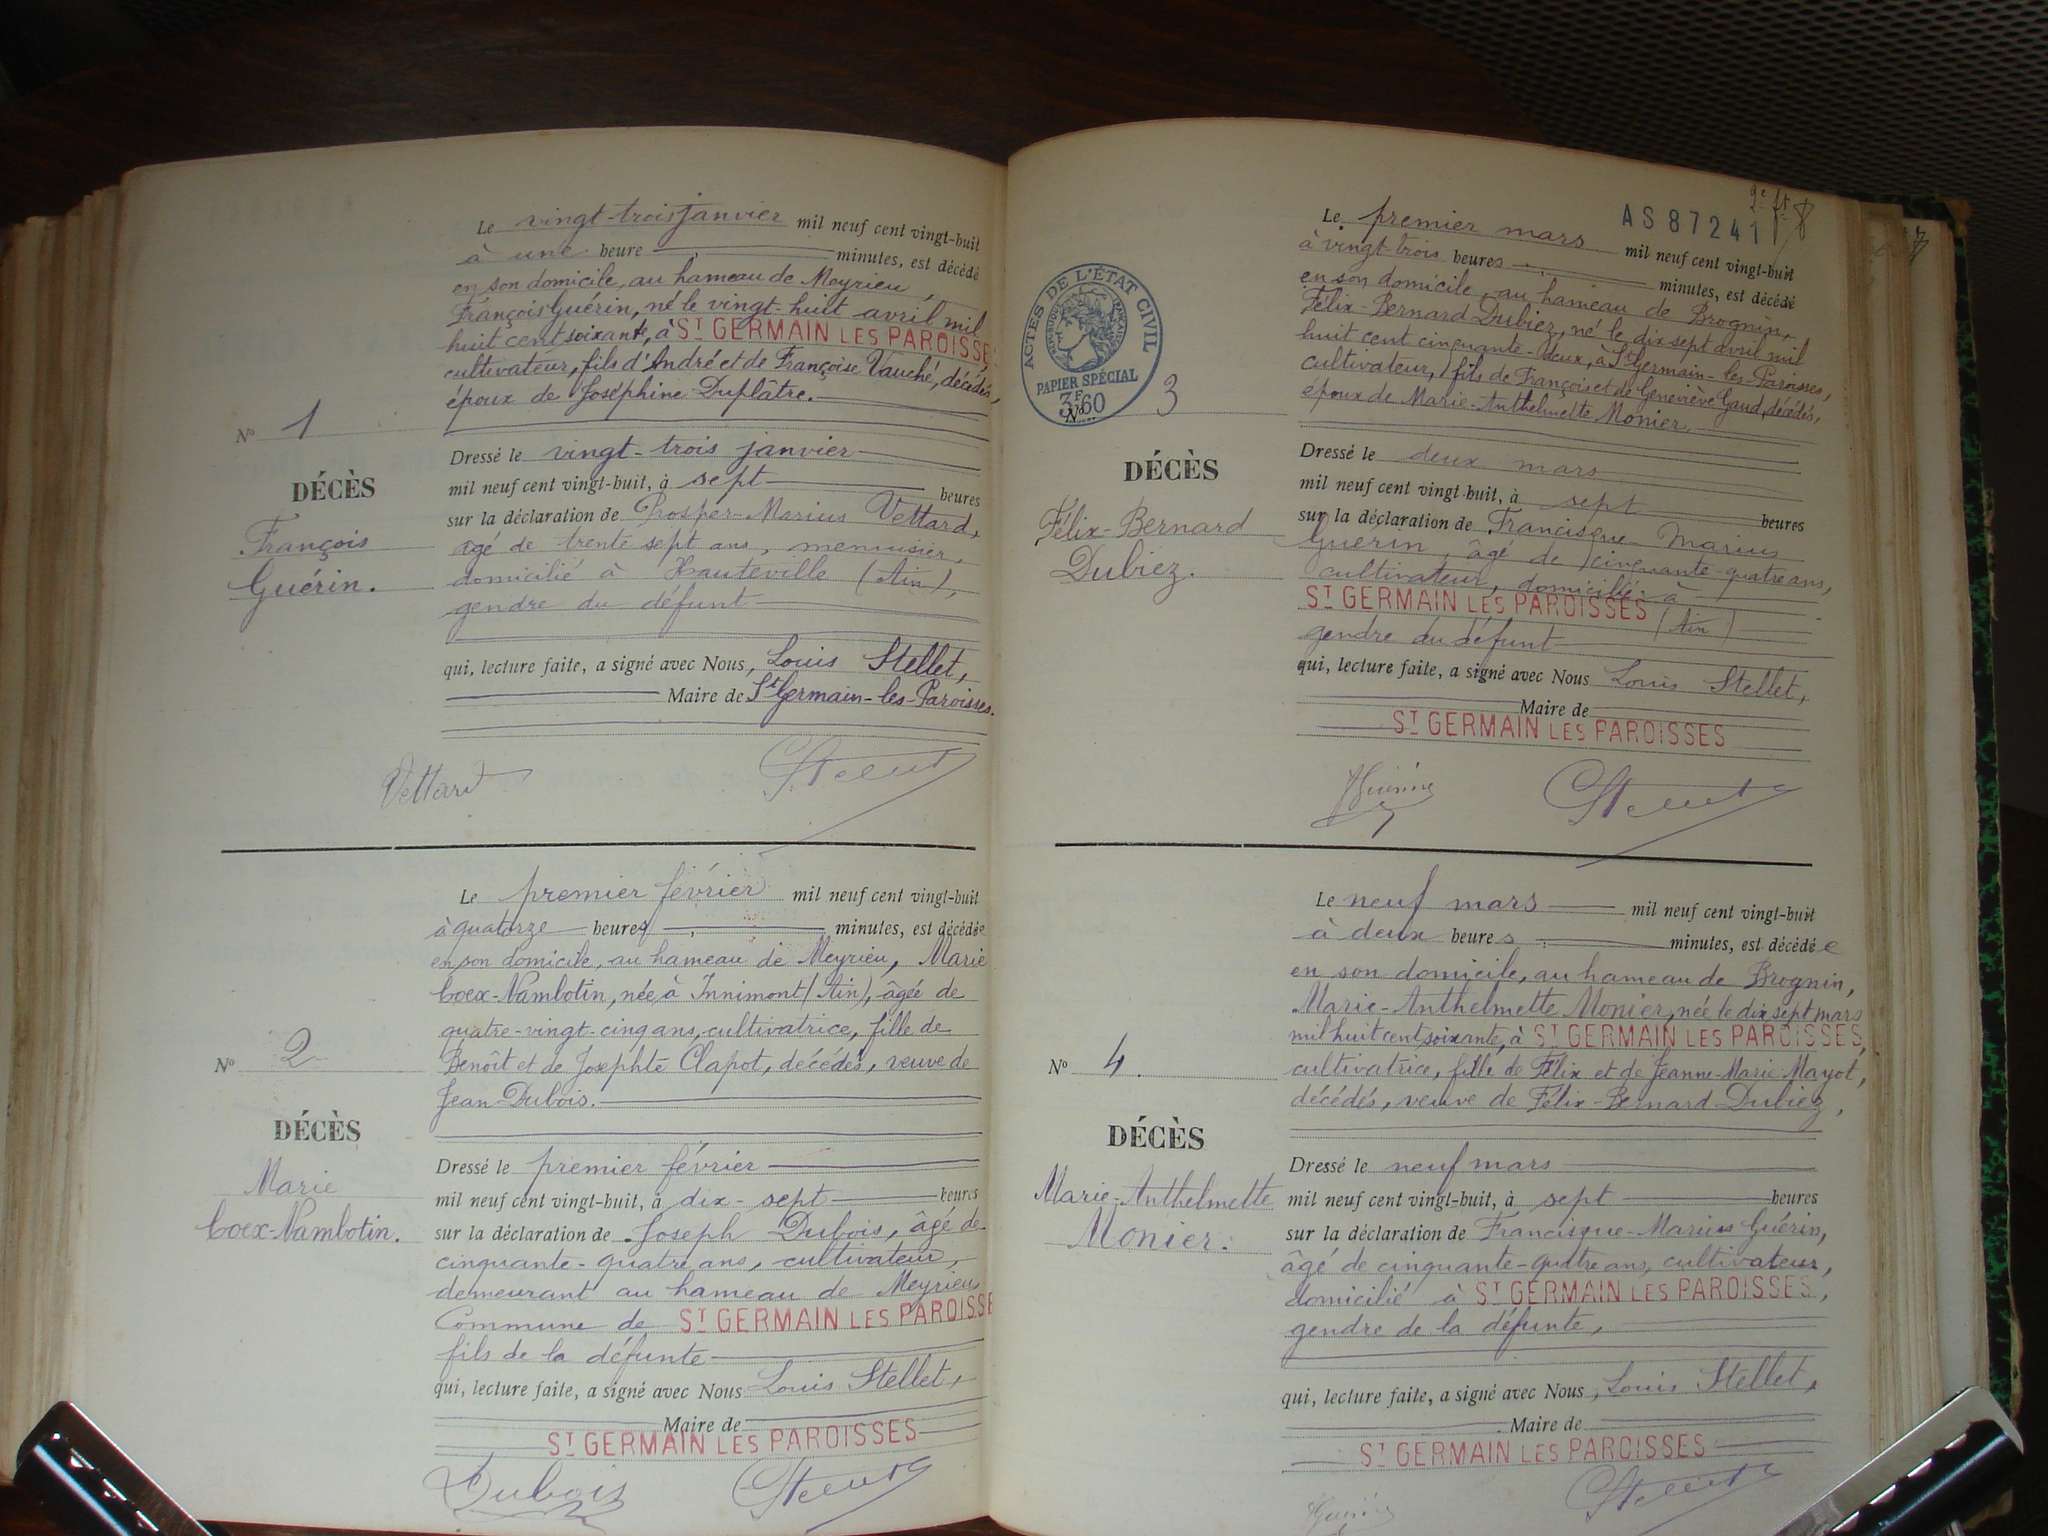 Le vingt-trois janvier mil neuf cent vingt-huit
à une heure minutes, est décédé
en son domicile, au hameau de Meyrieu,
François Guérin, né le vingt-huit avril mil
huit cent soixante, à ST GERMAIN LES PAROISSES
cultivateur, fils d'André et de Françoise Vauché, décédés,
époux de Joséphine Duplâtre.
No 1
DÉCÈS
François
Guérin.
Dressé le vingt-trois janvier
mil neuf cent vingt-huit, à sept heures
sur la déclaration de Prosper-Marius Vettard,
âgé de trente sept ans, menuisier,
domicilié à Hauteville (Ain),
gendre du défunt
qui, lecture faite, a signé avec Nous, Louis Stellet,
Maire de St Germain-les-Paroisses.
Vettard Stellet
Le premier février mil neuf cent vingt-huit
à quatorze heures minutes, est décédée
en son domicile, au hameau de Meyrieu, Marie
Coex-Nambotin, née à Innimont (Ain), âgée de
quatre-vingt-cinq ans, cultivatrice, fille de
Benoît et de Josephte Clapot, décédés, veuve de
Jean Dubois.
No 2
DÉCÈS
Marie
Coex-Nambotin.
Dressé le premier février
mil neuf cent vingt-huit, à dix-sept heures
sur la déclaration de Joseph Dubois, âgé de
cinquante-quatre ans, cultivateur,
demeurant au hameau de Meyrieu
Commune de ST GERMAIN LES PAROISSE
fils de la défunte
qui, lecture faite, a signé avec Nous Louis Stellet,
Maire de
ST GERMAIN LES PAROISSES
Dubois Stellet
2e ft
AS 87241
Le premier mars mil neuf cent vingt-huit
à vingt-trois heures minutes, est décédé
en son domicile, au hameau de Brognin,
Félix-Bernard Dubiez, né le dix sept avril mil
huit cent cinquante-deux, à St Germain-les-Paroisses,
cultivateur, fils de François et de Geneviève Gaud, décédés,
époux de Marie-Anthelmette Monier
ACTES DE L'ÉTAT CIVIL
PAPIER SPÉCIAL
3F60
No 3
DÉCÈS
Félix-Bernard
Dubiez.
Dressé le deux mars
mil neuf cent vingt-huit, à sept heures
sur la déclaration de Francisque Marius
Guerin, âgé de cinquante-quatre ans,
cultivateur, domicilié à
ST GERMAIN LES PAROISSES (Ain)
gendre du défunt
qui, lecture faite, a signé avec Nous Louis Stellet,
Maire de
ST GERMAIN LES PAROISSES
Guérin Stellet
Le neuf mars mil neuf cent vingt-huit
à deux heures minutes, est décédée
en son domicile, au hameau de Brognin,
Marie-Anthelmette Monier, née le dix sept mars
mil huit cent soixante, à ST GERMAIN LES PAROISSES,
cultivatrice, fille de Félix et de Jeanne-Marie Mayot,
décédés, veuve de Félix-Bernard Dubiez,
No 4.
DÉCÈS
Marie-Anthelmette
Monier.
Dressé le neuf mars
mil neuf cent vingt-huit, à sept heures
sur la déclaration de Francisque-Marius Guérin,
âgé de cinquante-quatre ans, cultivateur,
domicilié à ST GERMAIN LES PAROISSES,
gendre de la défunte,
qui, lecture faite, a signé avec Nous, Louis Stellet,
Maire de
ST GERMAIN LES PAROISSES
Guérin Stellet